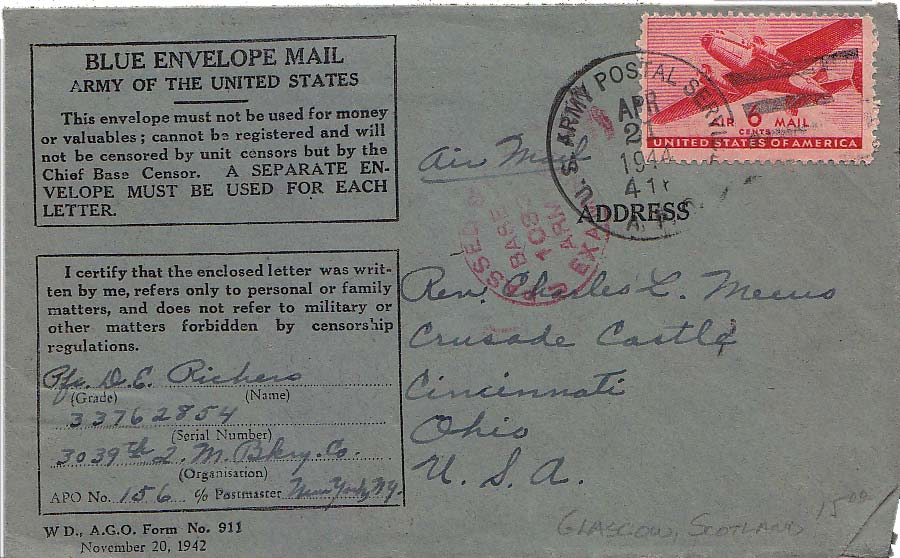 BLUE ENVELOPE MAIL
ARMY OF THE UNITED STATES
This envelope must not be used for money
or valuables; cannot be registered and will
not be censored by unit censors but by the
Chief Base Censor. A SEPARATE EN-
VELOPE MUST BE USED FOR EACH
LETTER.
I certify that the enclosed letter was writ-
ten by me, refers only to personal or family
matters, and does not refer to military or
other matters forbidden by censorship
regulations.
Pfc. D. E. Richers
(Grade) (Name)
33762854
(Serial Number)
3039th Q. M. Bkry. Co.
(Organisation)
APO No. 156 c/o Postmaster New York, N.Y.
W D., A.G.O. Form No. 911
November 20, 1942
Air Mail
U. S. ARMY POSTAL SERVICE
APR
21
1944
AIR 6 MAIL
CENTS
UNITED STATES OF AMERICA
ADDRESS
BASE
ARMY
Rev. Charles L. Meeus
Crusade Castle
Cincinnati
Ohio
U. S. A.
GLASGOW, SCOTLAND 15.00